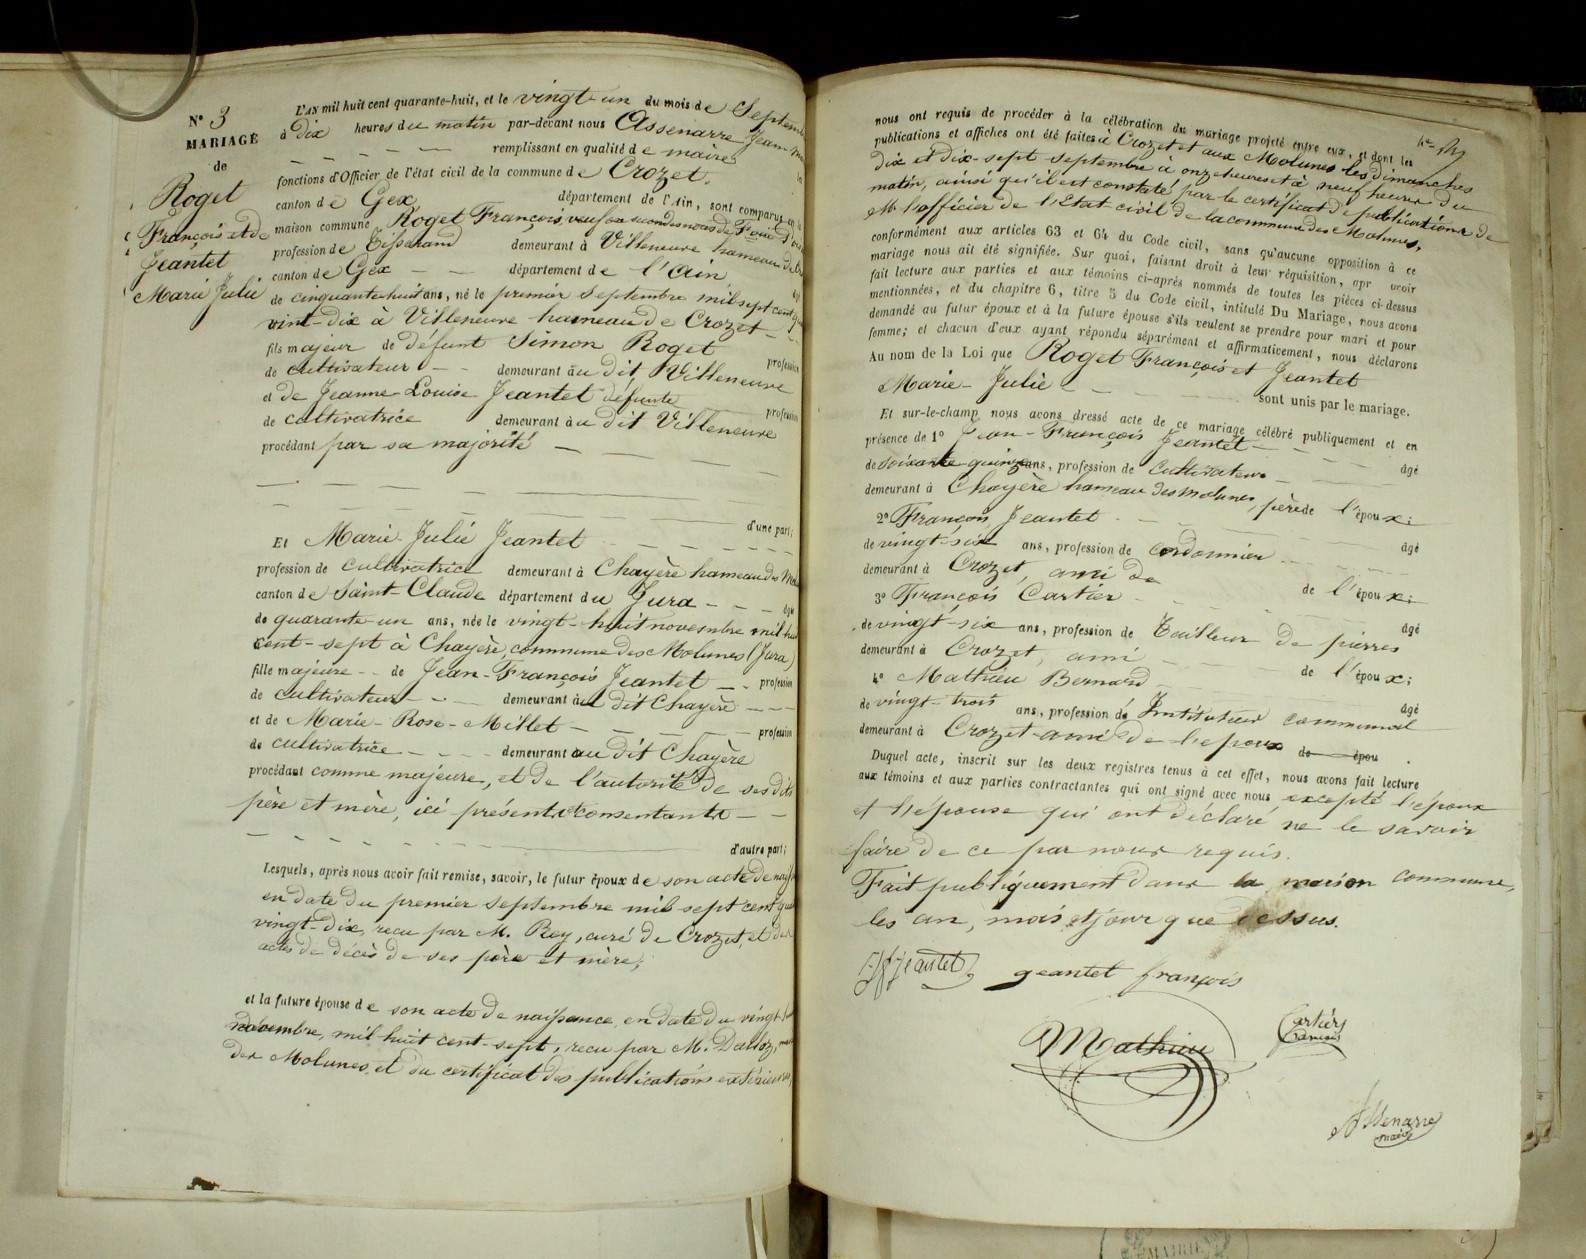 Nº 3
MARIAGE
de
Roget
François et de
Jeantet
Marie Julie
L'AN mil huit cent quarante-huit, et le vingt-un du mois de Septem
à dix heures du matin par-devant nous Assenarre Jean
remplissant en qualité de maire
fonctions d'Officier de l'état civil de la commune de Crozet,
canton de Gex département de l'Ain, sont comparus en
maison commune Roget François, veuf en secondes noces de
profession de Tisserand demeurant à Villeneuve hameau de
canton de Gex département de l'Ain
de cinquante-huit ans, né le premier septembre mil sept cent
vint-dix à Villeneuve hameau de Crozet
fils majeur de défunt Simon Roget profession
de cultivateur demeurant au dit Villeneuve
et de Jeanne Louise Jeantet défunte profession
de cultivatrice demeurant à au dit Villeneuve
procédant par sa majorité
d'une part;
Et Marie-Julie Jeantet
profession de cultivatrice demeurant à Chayère hameau des
canton de Saint-Claude département du Jura
de quarante-un ans, née le vingt-huit novembre mil huit
cent-sept à Chayère, commune des Molunes (Jura)
fille majeure de Jean-François Jeantet profession
de cultivateur demeurant au dit Chayère
et de Marie-Rose-Millet profession
de cultivatrice demeurant au dit Chayère
procédant comme majeure, et de l'autorité de ses dits
père et mère, ici présents et consentants
d'autre part;
Lesquels, après nous avoir fait remise, savoir, le futur époux de son acte de
en date du premier septembre mil sept cent
vingt-dix, reçu par M. Rey, curé de Crozet, et des
actes de décès de ses père et mère;
et la future épouse de son acte de naissance, en date du vingt
novembre, mil huit cent-sept, reçu par M. Dalloz,
des Molunes, et du certificat des publications
nous ont requis de procéder à la célébration du mariage projeté entre eux, et dont les
publications et affiches ont été faites à Crozet et aux Molunes les dimanches
dix et dix-sept septembre à onze heures et à neuf heures du
matin, ainsi qu'il est constaté par le certificat de publications de
M. l'officier de l'Etat civil de la commune des Molunes,
conformément aux articles 63 et 64 du Code civil, sans qu'aucune opposition à ce
mariage nous ait été signifiée. Sur quoi, faisant droit à leur réquisition, apr avoir
fait lecture aux parties et aux témoins ci-après nommés de toutes les pièces ci-dessus
mentionnées, et du chapitre 6, titre 5 du Code civil, intitulé Du Mariage, nous avons
demandé au futur époux et à la future épouse s'ils veulent se prendre pour mari et pour
femme; et chacun d'eux ayant répondu séparément et affirmativement, nous déclarons
Au nom de la Loi que Roget François et Jeantet
Marie-Julie sont unis par le mariage.
Et sur-le-champ nous avons dressé acte de ce mariage célébré publiquement et en
présence de 1º Jean-François Jeantet âgé
de soixante quinze ans, profession de cultivateur
demeurant à Chayère hameau des Molunes, père de l'époux;
2º François Jeantet âgé
de vingt-six ans, profession de cordonnier
demeurant à Crozet, ami de de l'époux;
3º François Cartier âgé
de vingt-six ans, profession de Tailleur de pierres
demeurant à Crozet, ami de l'époux;
4º Mathieu Bernard âgé
de vingt-trois ans, profession de Instituteur communal
demeurant à Crozet ami de l'époux de épou
Duquel acte, inscrit sur les deux registres tenus à cet effet, nous avons fait lecture
aux témoins et aux parties contractantes qui ont signé avec nous excepté l'époux
et l'épouse qui ont déclaré ne le savoir
faire de ce par nous requis.
Fait publiquement dans la maison commune,
les an, mois et jour que dessus.
Jeantet
geantet françois
Mathieu
Cartier
francois
Assenarre
maire
MAIRIE